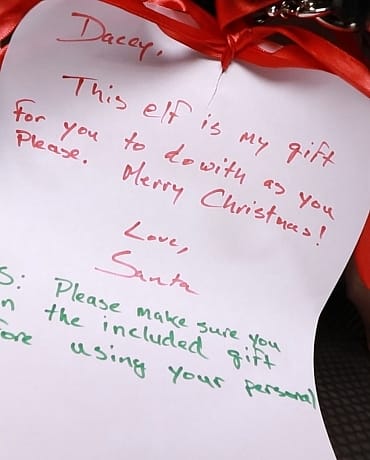 Dacey,
This elf is my gift
for you to do with as you
Please. Merry Christmas!
Love,
Santa
S: Please make sure you
n the included gift
ore using your personal